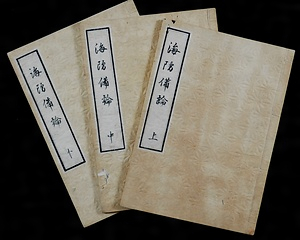 海防備論 下
海防備論 中
海防備論 上